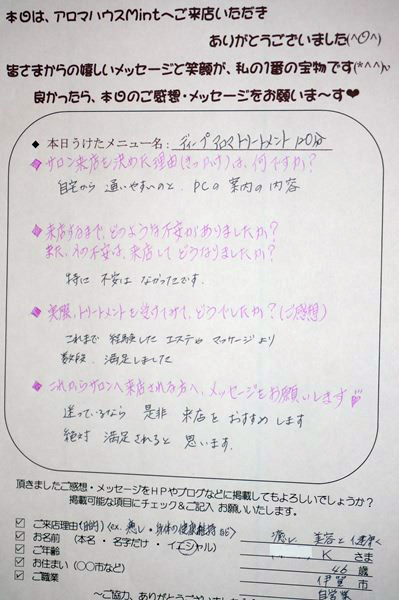 本日は、アロマハウスMintへご来店いただき
ありがとうございました(^O^)
皆さまからの嬉しいメッセージと笑顔が、私の1番の宝物です(*^^*)v
良かったら、本日のご感想・メッセージをお願いま～す♥
◆ 本日うけたメニュー名: ディープアロマトリートメント 120分
◆ サロン来店を決めた理由(きっかけ)は、何ですか?
自宅から 通いやすいのと、PCの案内の内容
◆ 来店するまで、どのような不安がありましたか?
また、その不安は、来店してどうなりましたか?
特に 不安は なかったです.
◆ 実際、トリートメントを受けてみて、どうでしたか?(ご感想)
これまで 経験した エステや マッサージ より
数段、満足しました
◆ これからサロンへ来店される方へ、メッセージをお願いします
迷っているなら 是非 来店を おすすめ します
絶対 満足されると 思います.
頂きましたご感想・メッセージをHPやブログなどに掲載してもよろしいでしょうか?
掲載可能な項目にチェック&ご記入 お願いいたします。
☑ ご来店理由(目的)<ex. 癒し・身体の健康維持 など> 癒し 美容と健康
☑ お名前 (本名・名字だけ・イニシャル) K さま
☑ ご年齢 46 歳
☑ お住まい (〇〇市など) 伊賀 市
☑ ご職業 自営業
～ご協力、ありがとう